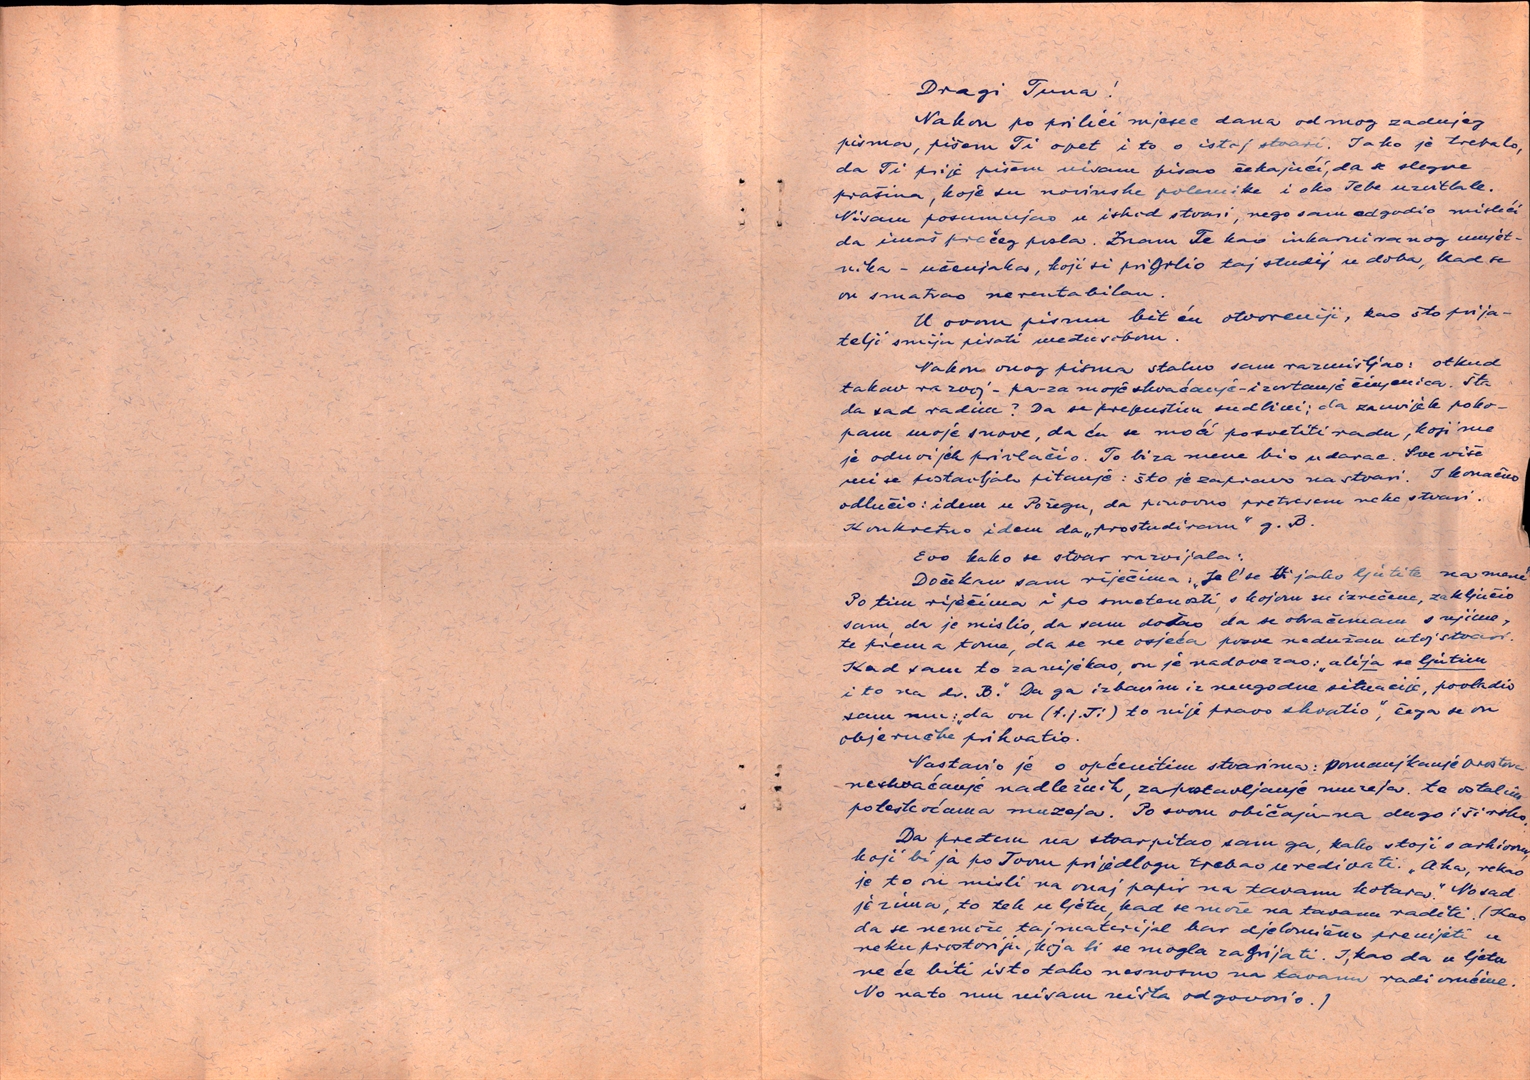 Dragi Tuna!
Nakon po prilici mjesec dana od mog zadnjeg
pisma, pišem Ti opet i to o istoj stvari. Iako je trebalo,
da Ti prije pišem nisam pisao čekajući, da se slegne
prašina, koje su novinske polemike i oko Tebe uzvitlale.
Nisam posumnjao u ishod stvari, nego sam odgodio misleći
da imaš prečeg posla. Znam Te kao inkarniranog umjet-
nika - učenjaka, koji si prigrlio taj studij u doba, kad se
on smatrao nerentabilan.
U ovom pismu bit ću otvoreniji, kao što prija-
telji smiju pisati međusobom.
Nakon onog pisma stalno sam razmišljao: otkud
takav razvoj - pa-za moje shvaćanje - izvrtanje činjenica. Šta
da sad radim? Da se prepustim sudbini; da zauvijek poko-
pam moje snove, da ću se moći posvetiti radu, koji me
je oduvijek privlačio. To bi za mene bio udarac. Sve više
mi se postavljalo pitanje: što je zapravo na stvari. I konačno
odlučio: idem u Požegu, da ponovno pretresem neke stvari.
Konkretno idem da „prostudiram" g. B.
Evo kako se stvar razvijala:
Dočekan sam riječima: „Je l' se Vi jako ljutite na mene
Po tim riječima i po smetenosti, s kojom su izrečene, zaključio
sam, da je mislio, da sam došao da se obračunam s njime,
te prema tome, da se ne osjeća posve nedužan u toj stvari.
Kad sam to zanijekao, on je nadovezao: „ali ja se ljutim
i to na dr. B." Da ga izbavim iz neugodne situacije, povladio
sam mu: „da on (t.j. Ti) to nije pravo shvatio", čega se on
objeručke prihvatio.
Nastavio je o općenitim stvarima: pomanjkanje prostora
neshvaćanje nadležnih, zapostavljanje muzeja. te ostalim
poteškoćama muzeja. Po svom običaju - na dugo i široko.
Da pređem na stvar pitao sam ga, kako stoji s arhivom,
koji bi ja po Tvom prijedlogu trebao uređivati. „Aha, rekao
je to on misli na onaj papir na tavanu kotara." No sad
je zima, to tek u ljetu, kad se može na tavanu raditi. (Kao
da se nemože taj materijal bar djelomično prenijeti u
neku prostoriju, koja bi se mogla zagrijati. I, kao da u ljetu
ne će biti isto tako nesnosno na tavanu radi vrućine.
No nato mu nisam ništa odgovorio.)